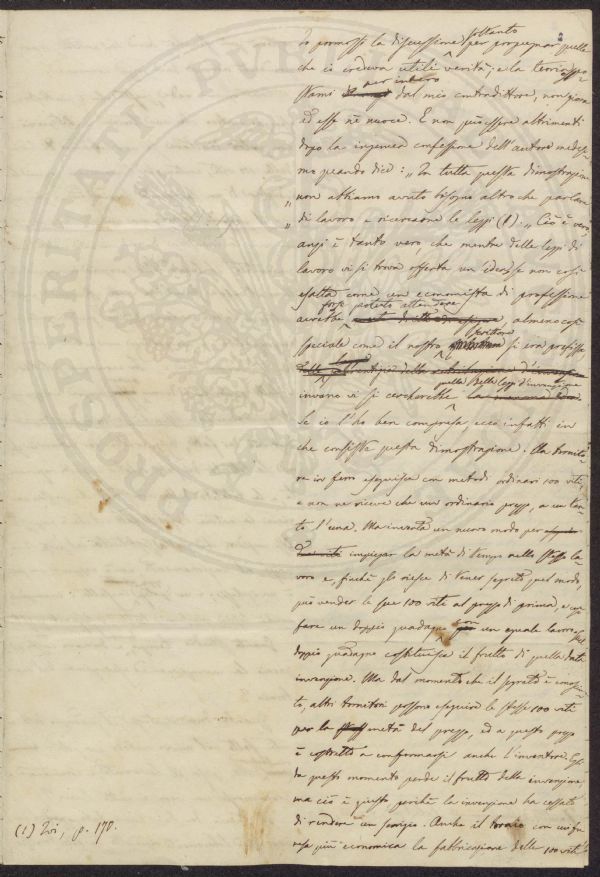 soltanto
Io promossi la discussione per propugnar quelle
che io credeva utili verità; e la teoria
per intero
stami dal mio contradittore, non giova
ed esse nè nuoce. E non può essere altrimenti
dopo la ingenua confessione dell'autore medesi-
mo quando dice: „ In tutta questa dimostrazione
„ non abbiamo avuto bisogno altro che parlare
„ di lavoro e ricercarne le leggi (1). „ Ciò è vero,
anzi è tanto vero, che mentre delle leggi di
lavoro vi si trova offerta un'idea se non così
esatta come un economista di professione
forse potuto attendere
avrebbe almeno così
scrittore
speciale come il nostro si era prefisso
quella della leggi d'invenzione
invano vi si cercherebbe
Se io l'ho ben compresa, ecco infatti in
che consiste questa dimostrazione. Un tornito-
re in ferro eseguisce con metodi ordinari 100 viti,
e non ne riceve che un ordinario prezzo, a un tan-
to l'una. Ma inventa un nuovo modo per
impiegar la metà di tempo nello stesso la-
voro e, finchè gli riesce di tener segreto quel modo,
può vender le sue 100 viti al prezzo di prima, e così
con
fare un doppio guadagno un eguale lavoro.
doppio guadagno costituisce il frutto di quella data
invenzione. Ma dal momento che il segreto è conosciu-
to, altri tornitori possono eseguire le stesse 100 viti
per la metà del prezzo, ed a questo prezzo
è costretto a conformarsi anche l'inventore. Egli
da questo momento perde il frutto della invenzione
ma ciò è giusto perchè la invenzione ha cessato
di rendere un servizio. Anche il tornio con cui fu
resa più economica la fabbricazione delle 100 viti
(1) Ivi, p. 170.